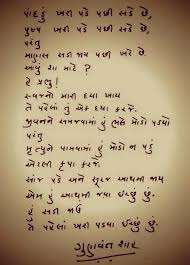 પાંદડું ખરી પડે પછી સડે છે,
પુષ્પ ખરી પડે પછી સડે છે,
પરંતુ
માણસ સડી જાય પછી ખરે છે.
આવું શા માટે ?
હે પ્રભુ !
સ્વજનો મારી દયા ખાય
તે પહેલાં તું એક દયા કરજે.
જીવનને સમજવામાં હું ભલે મોડો પડ્યો
પરંતુ
મૃત્યુને પામવામાં હું મોડો ન પડું
એટલી કૃપા કરજે.
સાંજ પડે અને સૂરજ આથમી જાય
એમ હું આથમી જવા ઇચ્છું છું.
હું સડી જાઉં
તે પહેલાં ખરી પડવા ઇચ્છું છું.
ગુણવંત શાહ